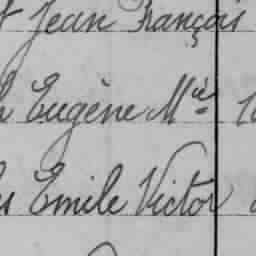 Jean François
Eugène Mie
Emile Victor